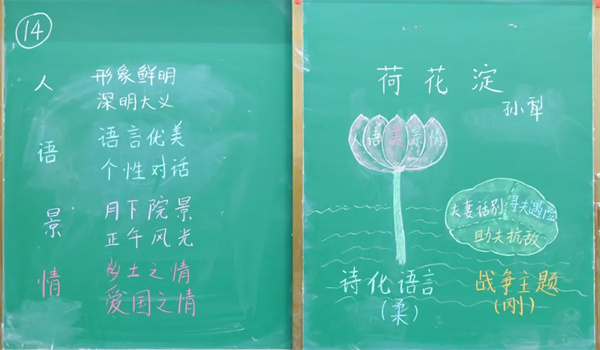 14
人
形象鲜明
深明大义
语
语言优美
个性对话
景
月下院景
正午风光
情
乡土之情
爱国之情
荷花淀
孙犁
人 语 美 景 情
夫妻话别 得夫遇险
助夫抗敌
诗化语言
(柔)
战争主题
(刚)